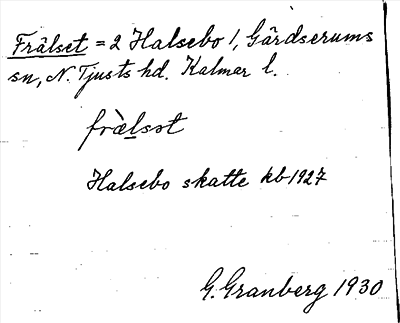 Frälset = 2 Halsebo 1, Gärdserums
sn, N. Tjusts hd. Kalmar l.
fræ̀lsst
Halsebo skatte kb 1927
G. Granberg 1930